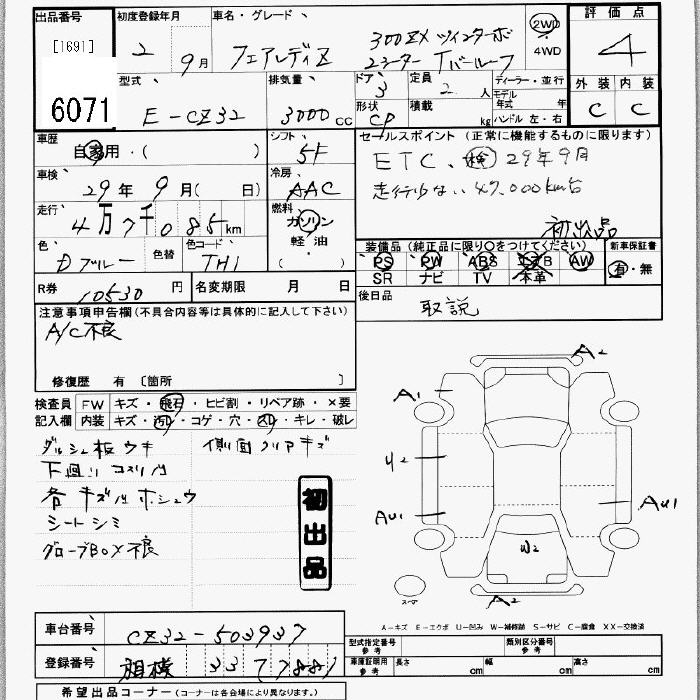 出品番号 初度登録年月 車名・グレード 評価点
[1691] 2年 9月 フェアレディZ 300ZXツインターボ 2WD 4
6071 2シーターTバールーフ 4WD
型式 排気量 ドア 定員 ディーラー・並行 外装 内装
E-CZ32 3000cc 3 2人 モデル年式 年 C C
形状 積載 kg ハンドル 左・右
CP
車歴 シフト セールスポイント (正常に機能するものに限ります)
自家用・( ) 5F ETC、検 29年9月
車検 冷房 走行少ない 47,000km台
29年 9月( 日) AAC
走行 燃料 初出品
4万7千085km ガソリン
色 色替 色コード 軽油・( ) 装備品(純正品に限り○をつけてください) 新車保証書
Dブルー TH1 PS PW ABS エアB AW 有・無
SR ナビ TV 本革
R券 10530円 名変期限 月 日 後日品
取説
注意事項申告欄(不具合内容等は具体的に記入して下さい)
A/C不良
修復歴 有〔箇所 〕
検査員 FW キズ・飛石・ヒビ割・リペア跡・×要
記入欄 内装 キズ・汚レ・コゲ・穴・スレ・キレ・破レ
ダッシュ板ウキ 側面クリアキズ
下廻りコスリ
各キズ ホシュウ
シートシミ
グローブBOX不良
初出品
A2
A1
U2
AU1 AU1
W2
A2
スペア
A-キズ E-エクボ U-凹み W-補修跡 S-サビ C-腐食 XX-交換済
車台番号 CZ32-503937 型式指定番号 参考 類別区分番号 参考
登録番号 相模 33 7788 車庫証明用 参考 長さ cm 幅 cm 高さ cm
希望出品コーナー(コーナーは各会場により異なります。)